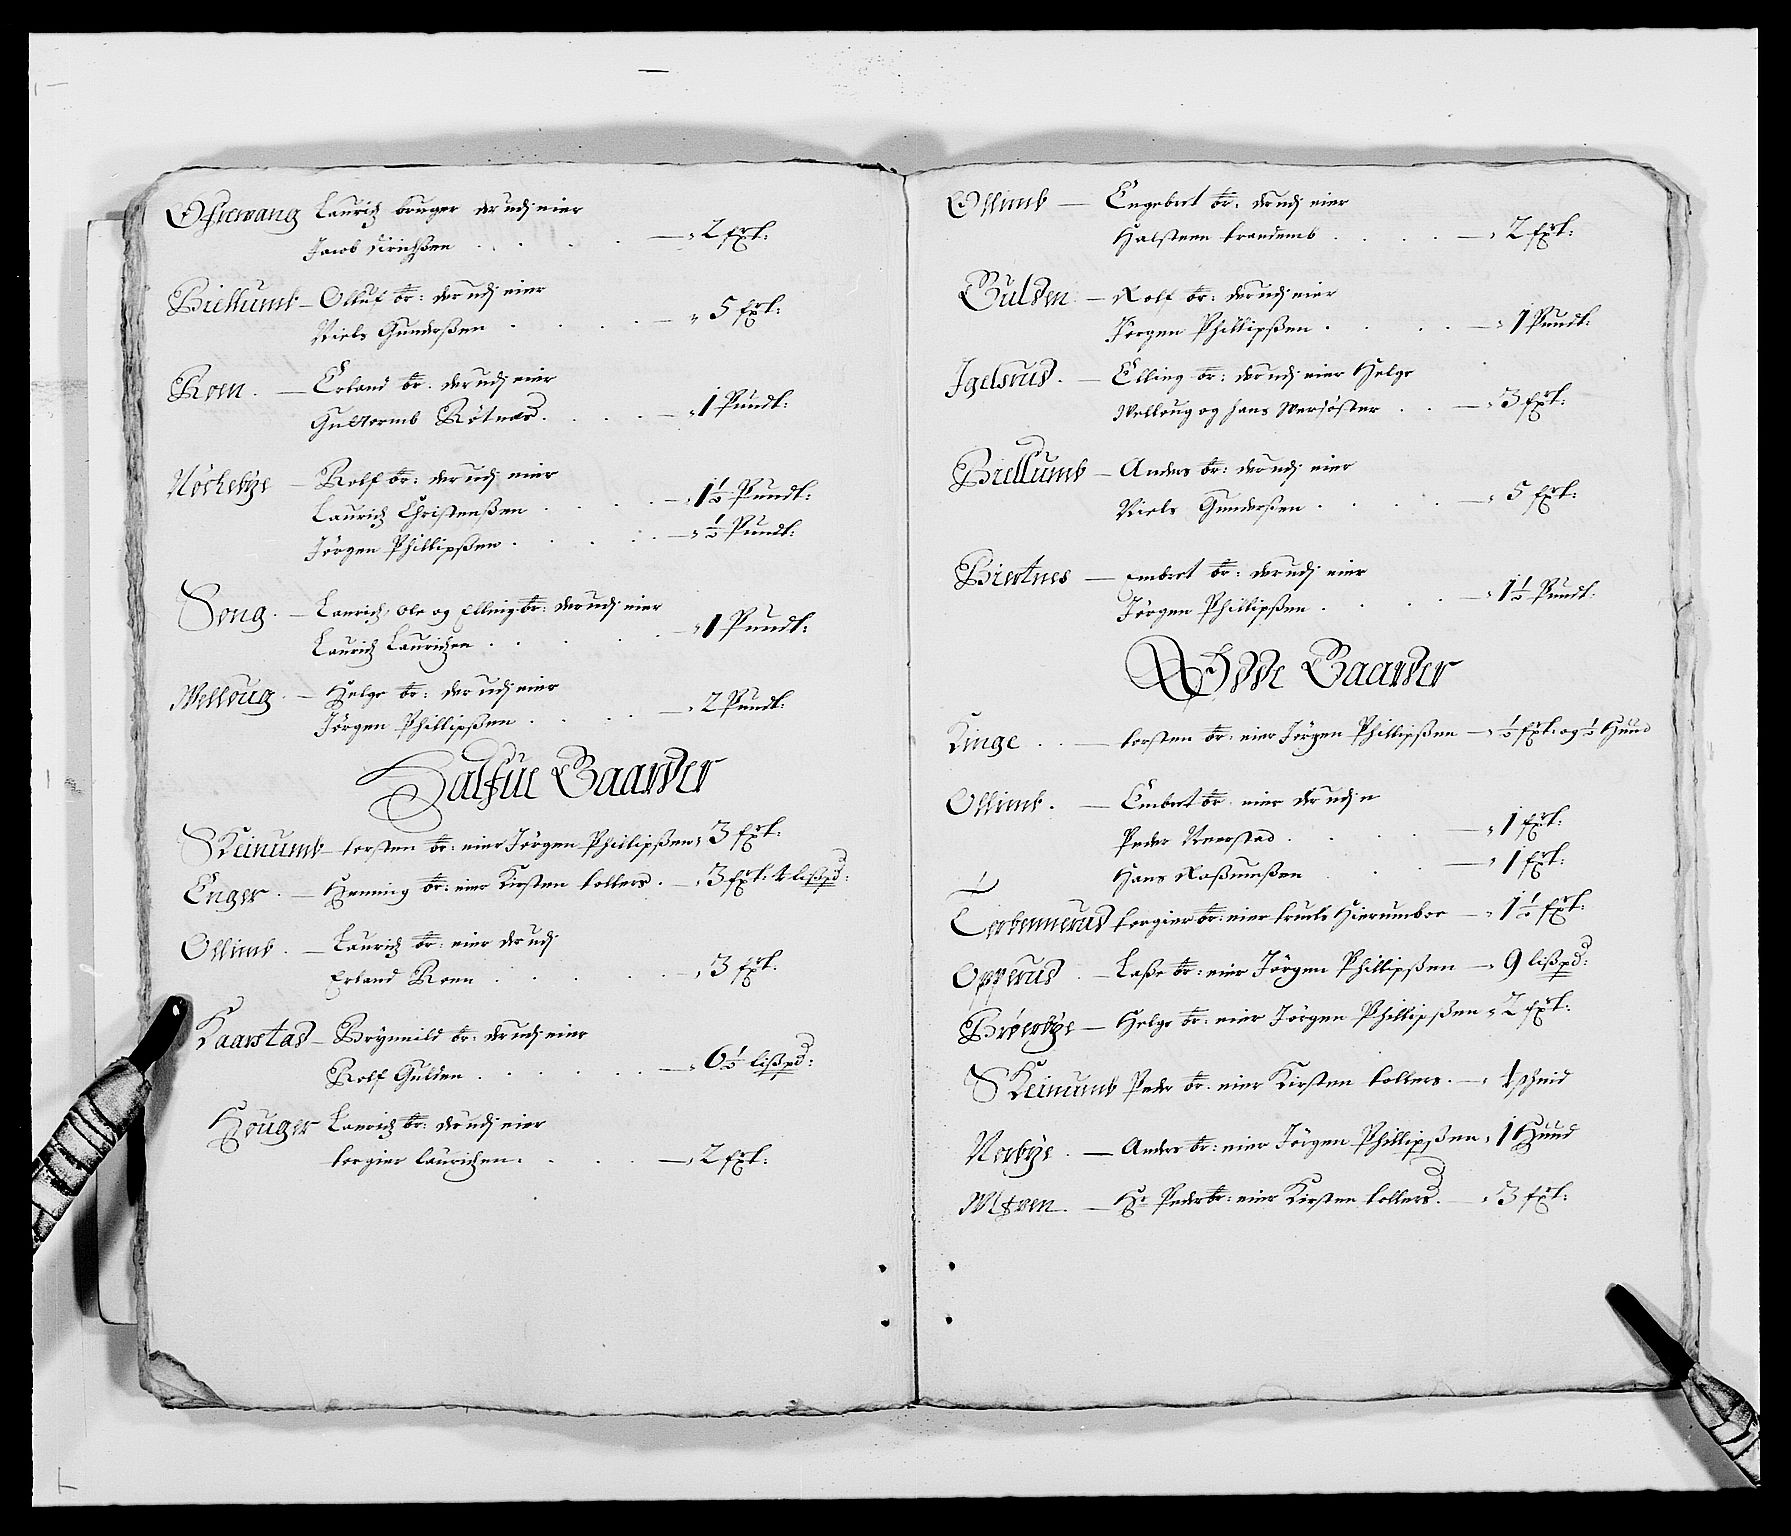 Østewang Laurids bruger derudj eier
Jacob Dirichßen . . . . — 2 fxr:
Biellumb — Olluf br: derudj eier
Niels Gunderßen . . . . — 5 fxr:
Roen . — Erland br. derudj eier
Gulltormb Røtnes . . . — 1 Pundt:
Nøchebye — Rolf br: derudj eier
Laurids Christenßen . . . — 1½ Pundt:
Jörgen Phillipßen . . . . — ½ Pundt:
Song . — Laurids, Ole og Elling br: derudj eier
Laurids Lauridzen . . . — 1 Pundt:
Welloug . — Helge br: derudj eier
Jörgen Phillipßen . . . — 2 Pundt:
Halfue Gaarder
Skeinumb — torsten br: eier Jörgen Phillipßen 3 fxr:
Enger . — Henning br: eier Kirsten tollers . — 3 fxr: 4 lißpd:
Ollimb . — Laurids br: eier derudj
Erland Roen . . . . — 3 fxr:
Kaarstad — Brynnild br: derudj eier
Rolf Gulden . . . . . — 6½ lißpd:
Houger Laurids br: derudj eier
torgier Lauridzen . . . . — 2 fxr:
Ollimb — Engebret br: derudj eier
Halsteen brandemb . . . . — 2 fxr:
Gulden — Rolf br: derudj eier
Jörgen Phillipßen . . . . — 1 Pundt:
Igelsrud . — Elling br: derudj eier Helge
Welloug og hans . . — 3 fxr:
Biellumb — Anders br: derudj eier
Niels Gunderßen . . . . — 5 fxr:
Biertnes — Embret br: derudj eier
Jörgen Phillipßen . . . . — 1½ Pundt:
Øde Gaarder
Kinge . . — torsten br: eier Jörgen Phillipßen — ½ fxr: og ½ Huud
Ollimb . — Embret br. eier derudj
Peder Neerstad . . . . — 1 fxr:
Hans Raßmußen . . . — 1 fxr:
Torbennerud torgier br: eier truels — 1½ fxr:
Opperud . — Laße br: eier Jörgen Phillipßen — 9 lißpd:
Brøerbye — Helge br: eier Jörgen Phillipßen 2 fxr:
Skeinumb Peder br. eier Kirsten tollers . — 1 schind
Nerbye . — Anders br: eier Jörgen Phillipßen 1 Huud
Moen . — Hr Peder br: eier Kirsten tollers . — 3 fxr: